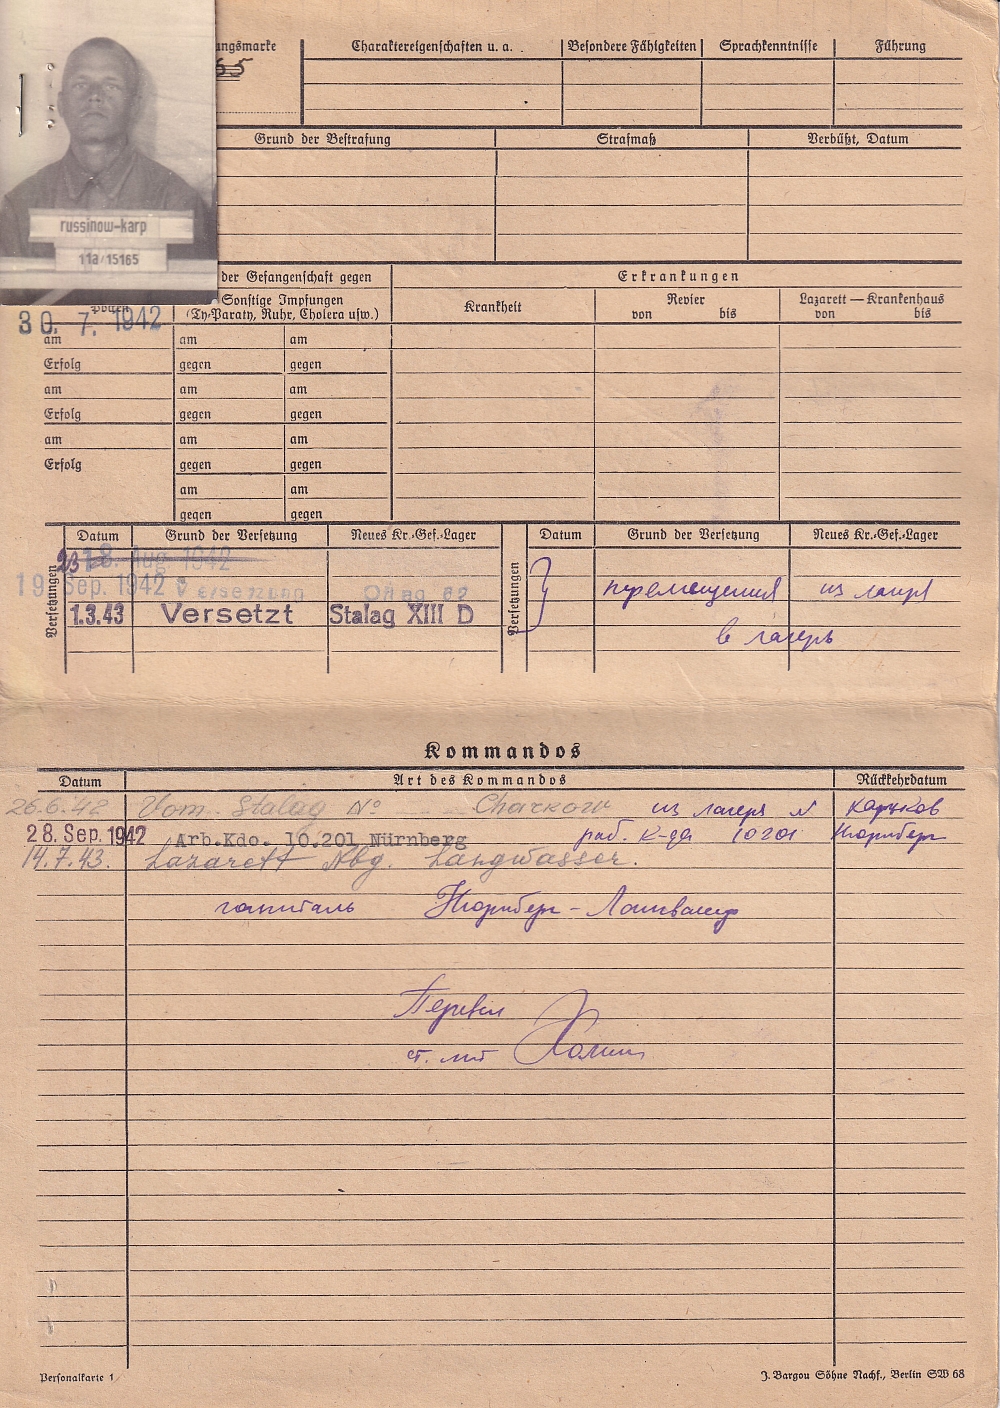 ungsmarke Charaktereigenschaften u. a. Besondere Fähigkeiten Sprachkenntnisse Führung
65
Grund der Bestrafung Strafmaß Verbüßt, Datum
russinow-karp
11a/15165
der Gefangenschaft gegen Erkrankungen
Pocken Sonstige Impfungen Krankheit Revier Lazarett — Krankenhaus
(Ty-Paraty, Ruhr, Cholera usw.) von bis von bis
30. 7. 1942
am am am
Erfolg gegen gegen
am am am
Erfolg gegen gegen
am am am
Erfolg gegen gegen
am am
gegen gegen
Versetzungen Datum Grund der Versetzung Neues Kr.-Gef.-Lager Versetzungen Datum Grund der Versetzung Neues Kr.-Gef.-Lager
18. Aug 1942
19 Sep. 1942 Versetzung Oflag 62 перемещения из лагеря
1.3.43 Versetzt Stalag XIII D
в лагерь
Kommandos
Datum Art des Kommandos Rückkehrdatum
26.6.42 Vom Stalag No Charkow из лагеря № Харьков
28. Sep. 1942 Arb.Kdo. 10.201 Nürnberg раб. к-да 10201 Нюрнберг
14.7.43. Lazarett Nbg. Langwasser.
госпиталь Нюрнберг - Лангвассер
Перевел
ст. л-т
Personalkarte 1 J. Bargou Söhne Nachf., Berlin SW 68